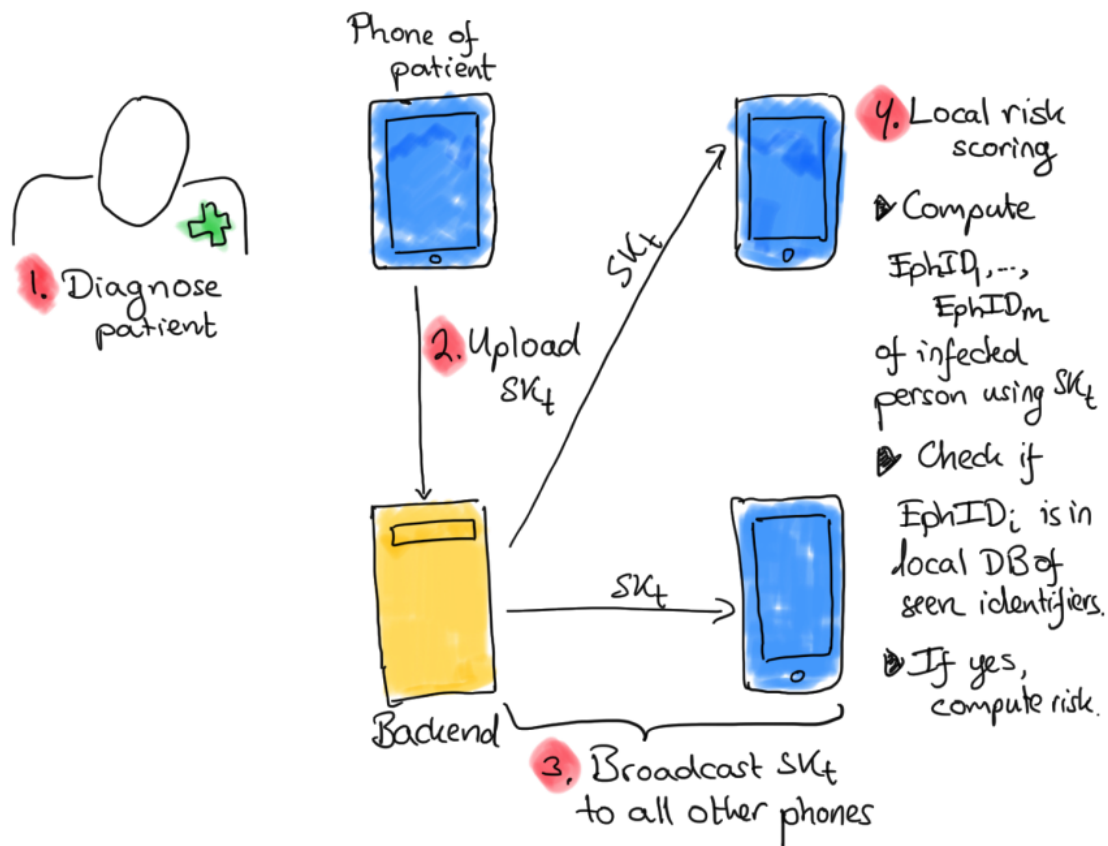 Phone of
patient
1. Diagnose
patient
2. Upload
SKt
SKt
SKt
Backend
3. Broadcast SKt
to all other phones
4. Local risk
scoring
Compute
EphID1,...,
EphIDm
of infected
person using SKt
Check if
EphIDi is in
local DB of
seen identifiers.
If yes,
compute risk.